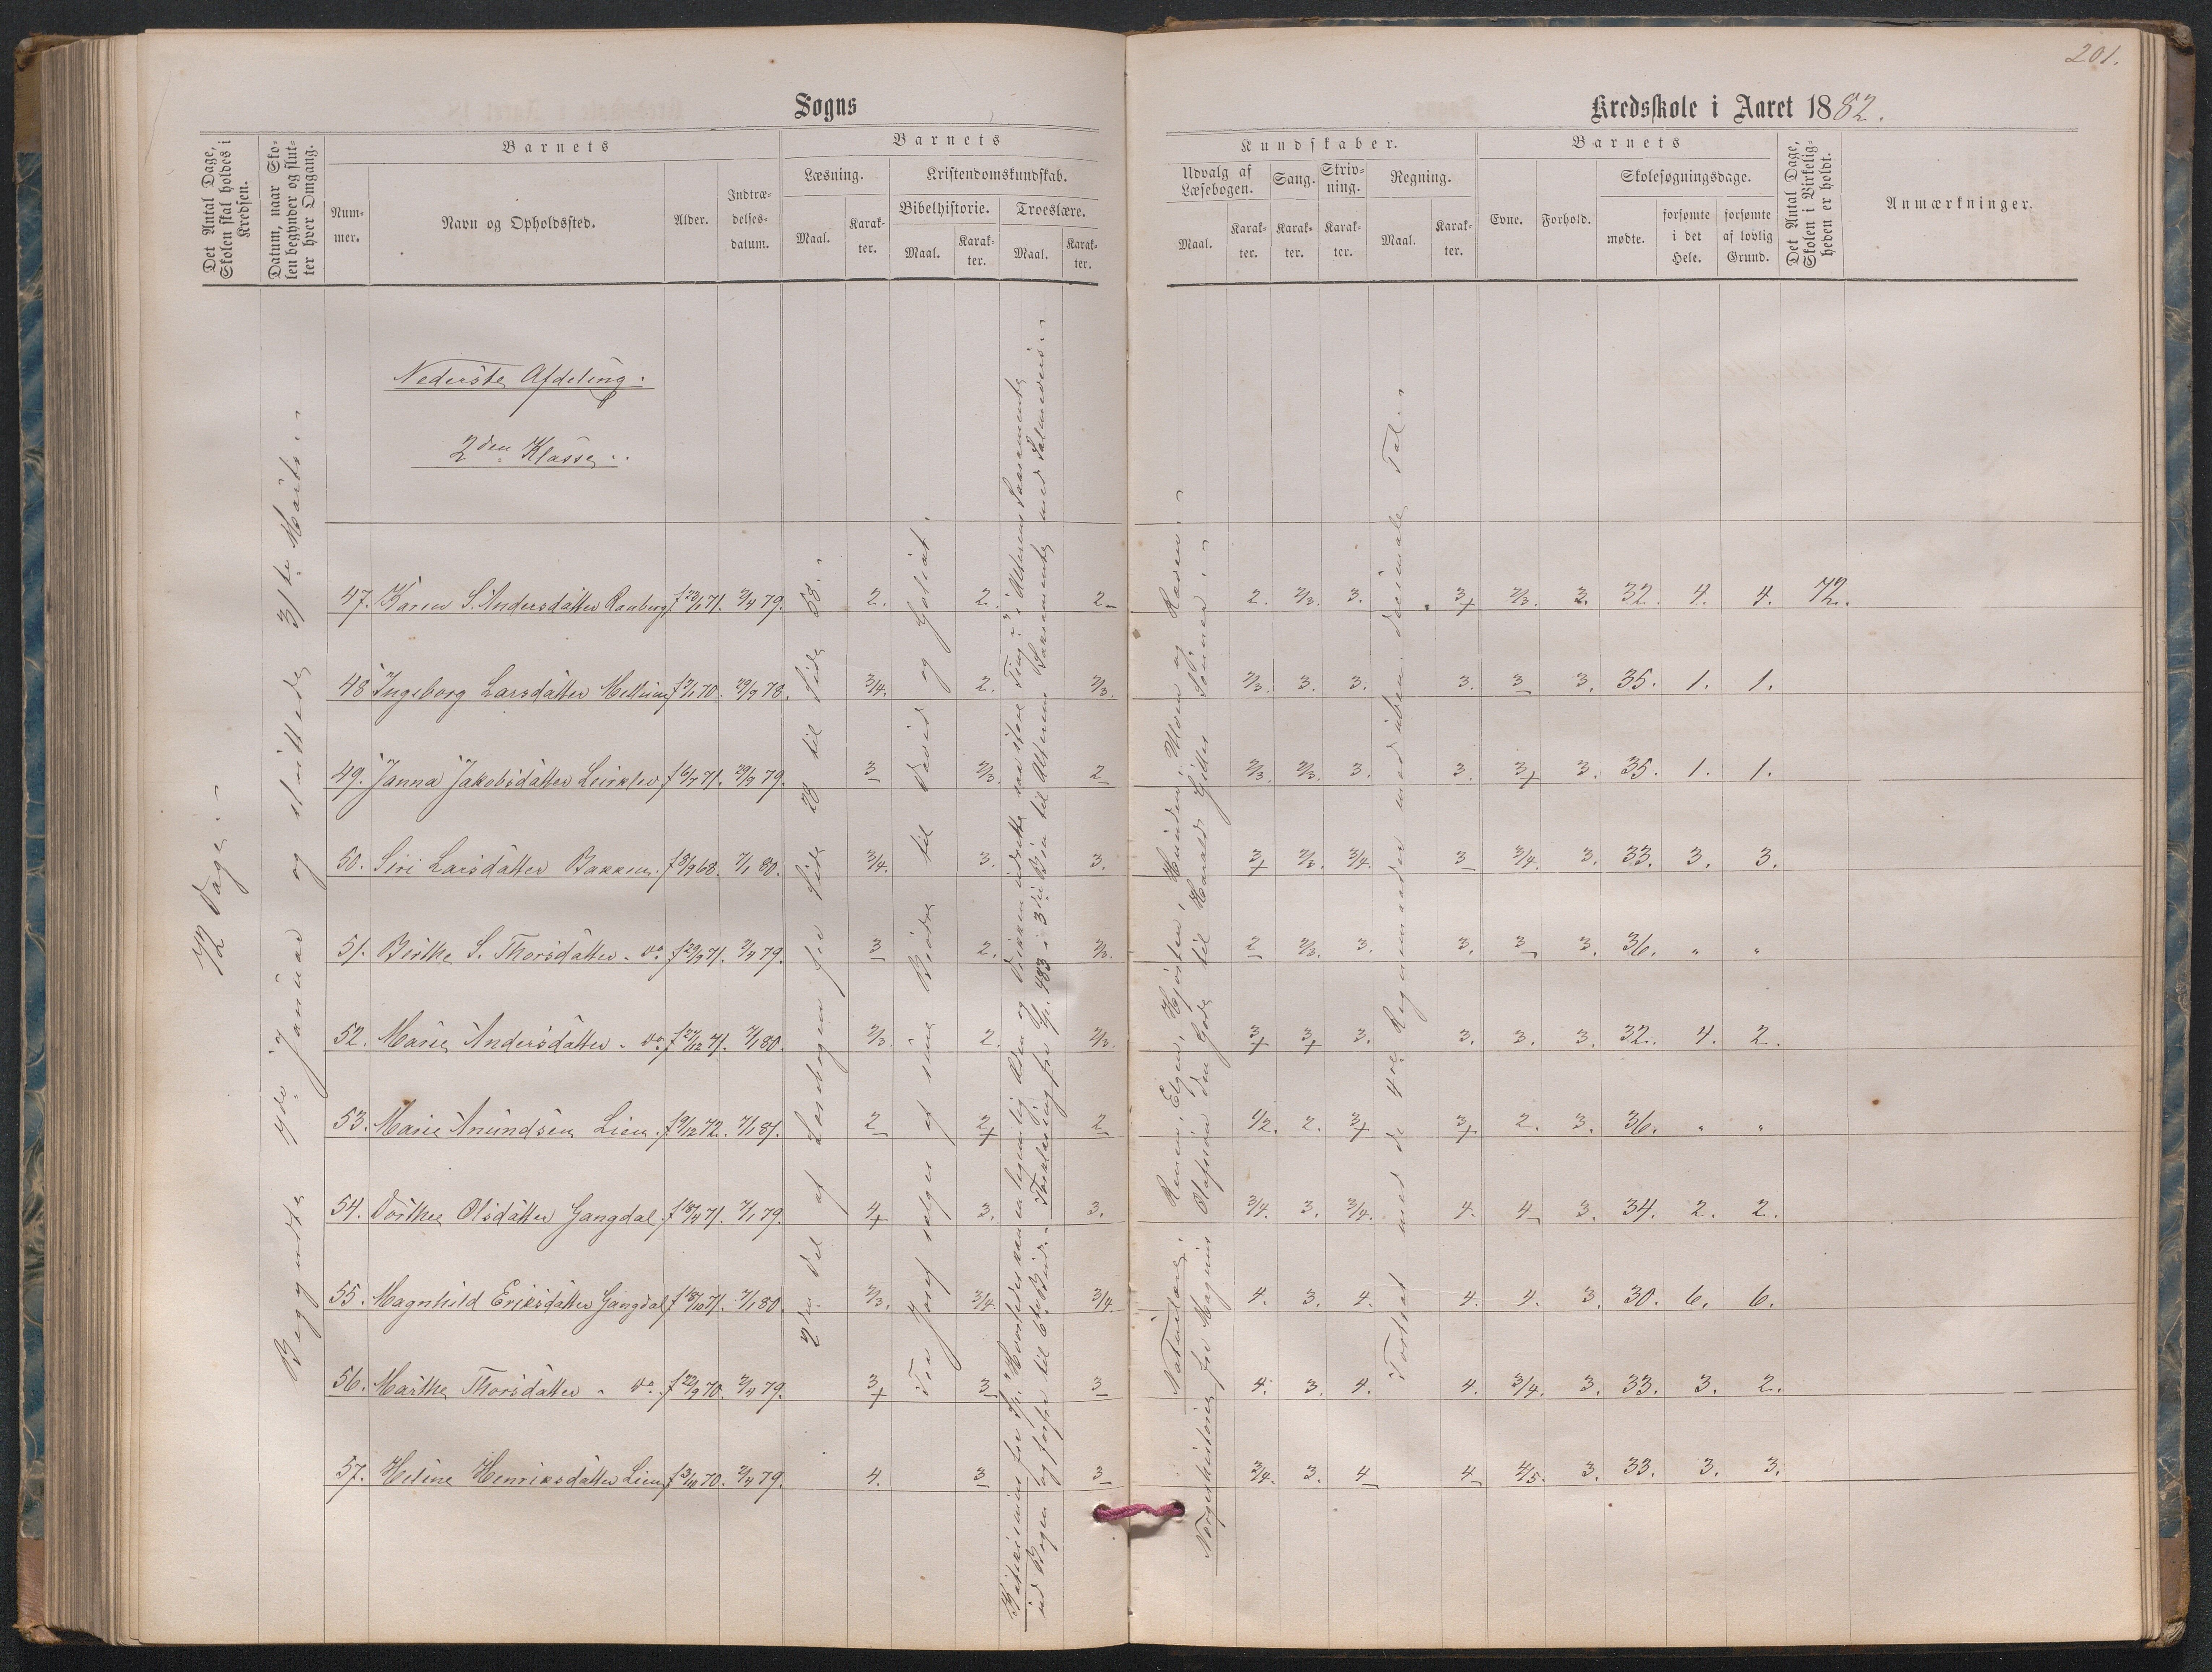 201.
Sogns
Kredsskole i Aaret 1882.
Det Antal Dage, Skolen skal holdes i Kredsen.
Datum, naar Skolen begynder og slutter hver Omgang.
Barnets
Nummer.
Navn og Opholdssted.
Alder.
Indtrædelsesdatum.
Barnets
Læsning.
Maal.
Karakter.
Kristendomskundskab.
Bibelhistorie.
Maal.
Karakter.
Troeslære.
Maal.
Karakter.
Kundskaber.
Udvalg af Læsebogen.
Maal.
Karakter.
Sang.
Karakter.
Skrivning.
Karakter.
Regning.
Maal.
Karakter.
Barnets
Evne.
Forhold.
Skolesøgningsdage.
mødte.
forsømte i det Hele.
forsømte af lovlig Grund.
Det Antal Dage, Skolen i Virkeligheden er holdt.
Anmærkninger.
72 Dage.
Begyndte 9de Januar og sluttede 31te Marts.
Nederste Afdeling.
2den Klasse.
2den Del af Læsebogen fra Side 28 til Side 58.
Fra Josef sælges af sine Brødre til David og Goliat.
Norgeshistorie fra Magnus Olafsøn den Gode til Harald Gilles Sønner.
Naturlære: Renen, Elgen, Hjorten, Hunden, Ulven og Ræven.
Fortsat med de 4re Regningsarter med uben. decimale Tal.
47. Karen S. Andersdatter Rauberg f 23/1 71. 3/4 79. 2. 2. 2 2. 2/3. 3. 3+ 2/3. 3. 32. 4. 4. 72.
48 Ingeborg Larsdatter Mellum 70. 29/9 78. 3/4. 2. 2/3. 2/3. 3. 3. 3. 3 3. 35. 1. 1.
49. Janna Jakobsdatter Leirklev f 6/7 71. 29/9 79. 3 2/3. 2 2/3. 2/3. 3. 3. 3+ 3. 35. 1. 1.
50. Siri Larsdatter Bakken. f 8/9 68. 7/1 80. 3/4. 3. 3. 3+ 2/3. 3/4. 3 3/4. 3. 33. 3. 3.
51. Berthe S. Thorsdatter - do f 29/9 71. 3/4 79. 3 2. 2/3. 2 2/3. 3. 3. 3 3. 36. " "
52. Marie Andersdatter - do. f 27/12 71. 7/1 80. 2/3. 2. 2/3. 3+ 3+ 3. 3. 3. 3. 32. 4. 2.
53. Marie Anundsen Lien. f 9/12 72. 7/1 81. 2 2+ 2 1/2. 2. 3+ 3+ 2. 3. 36. " "
54. Dorthe Olsdatter Gangdal. f 18/4 71. 7/1 79. 4+ 3. 3. 3/4. 3. 3/4. 4. 4 3. 34. 2. 2.
55. Magnhild Eriksdatter Gangdal f 18/10 71. 7/1 80. 2/3. 3/4 3/4. 4. 3. 4. 4. 4. 3. 30. 6. 6.
56. Marthe Thorsdatter - do. f 23/9 70. 3/4 79. 3+ 3 3 4. 3. 4. 4. 3/4. 3. 33. 3. 2.
57. Heline Henriksdatter Lien 70. 3/4 79. 4. 3 3 3/4. 3. 4 4 4/5. 3. 33. 3. 3.